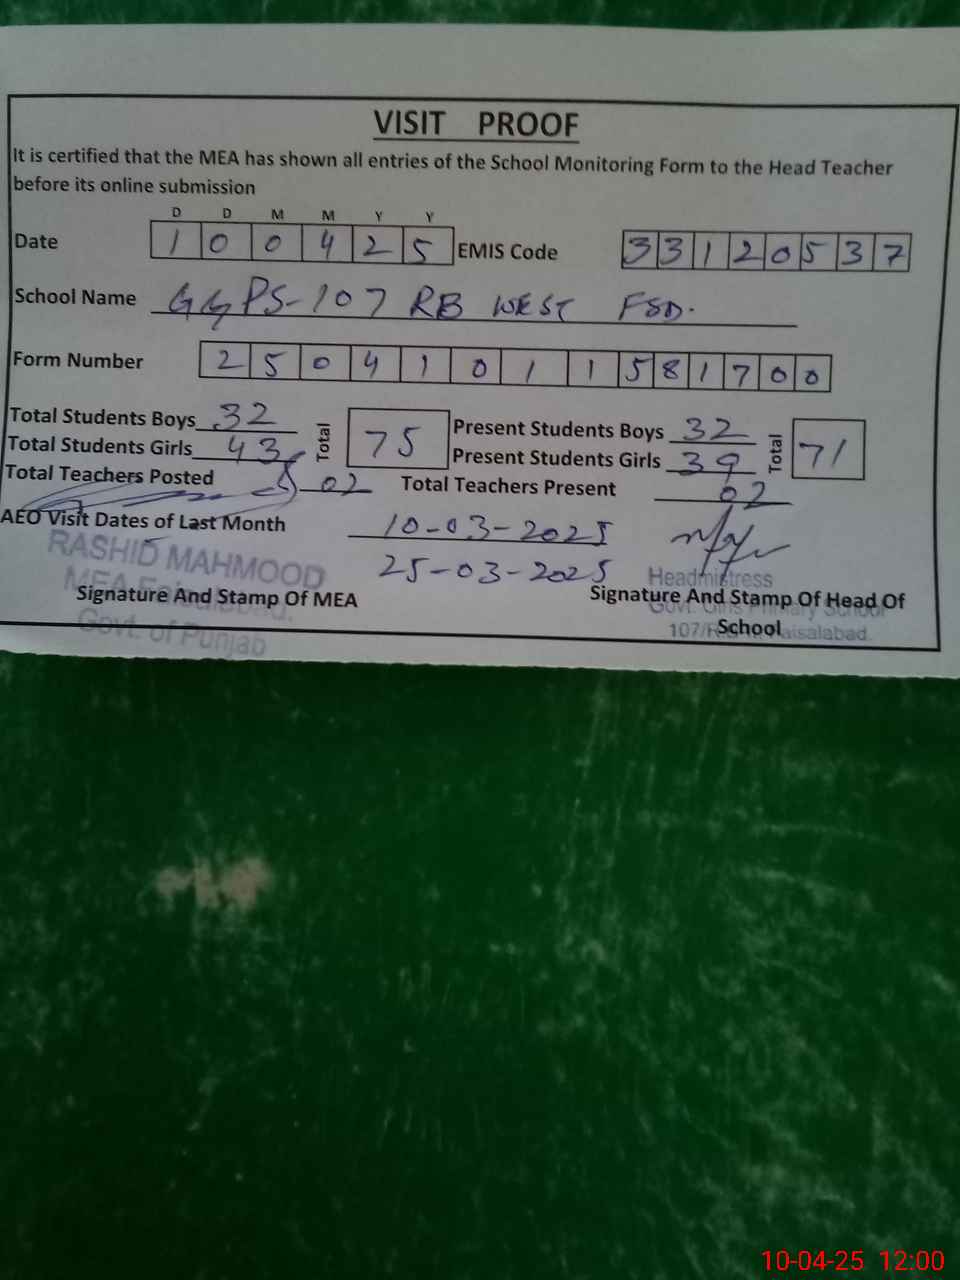 VISIT PROOF
It is certified that the MEA has shown all entries of the School Monitoring Form to the Head Teacher
before its online submission
D D M M Y Y
Date 1 0 0 4 2 5 EMIS Code 3 3 1 2 0 5 3 7
School Name GGPS-107 RB WEST FSD.
Form Number 2 5 0 4 1 0 1 1 5 8 1 7 0 0
Total Students Boys 32 Total 75 Present Students Boys 32 Total 71
Total Students Girls 43 Present Students Girls 39
Total Teachers Posted 02 Total Teachers Present 02
AEO Visit Dates of Last Month 10-03-2025
25-03-2025
RASHID MAHMOOD
MEA Faisalabad.
Govt. of Punjab
Signature And Stamp Of MEA
Headmistress
Govt. Girls Primary School
107/R Faisalabad.
Signature And Stamp Of Head Of
School
10-04-25 12:00